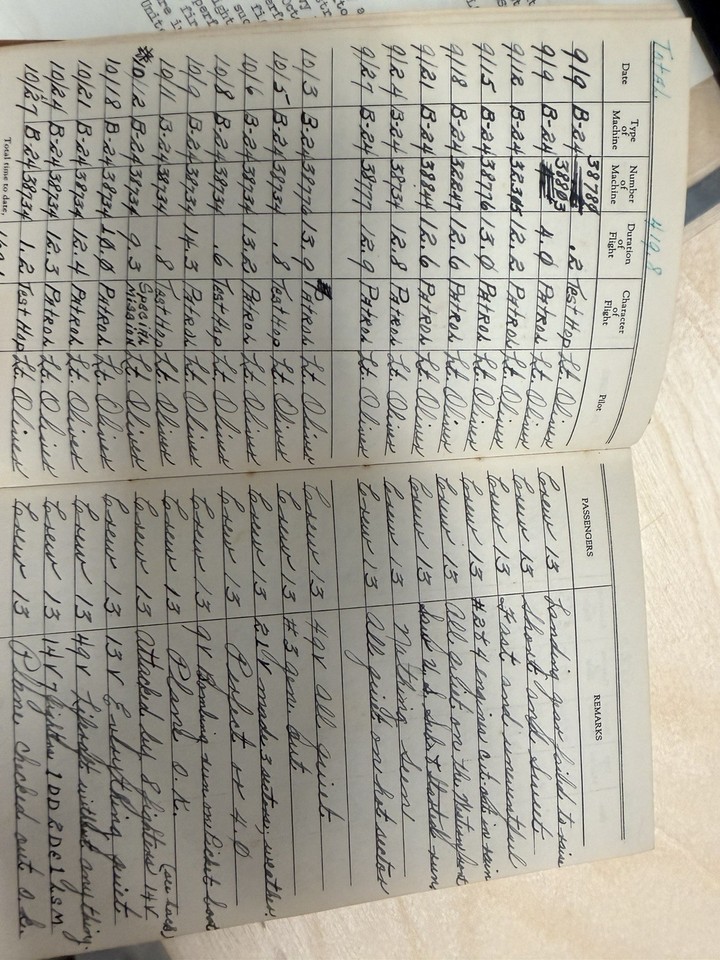 Total 419.8
Date Type of Machine Number of Machine Duration of Flight Character of Flight Pilot PASSENGERS REMARKS
9/9 B-24 38788 .2 Test Hop Lt. Oliver Crew 13 Landing gear failed to raise
9/9 B-24 38803 4.0 Patrol Lt. Oliver Crew 13 Short and sweet
9/12 B-24 32315 12.2 Patrol Lt. Oliver Crew 13 Fast and uneventful
9/15 B-24 38776 13.0 Patrol Lt. Oliver Crew 13 #3 & 4 engines cut out in rain
9/18 B-24 32247 12.6 Patrol Lt. Oliver Crew 13 All quiet on the
9/21 B-24 38844 12.6 Patrol Lt. Oliver Crew 13 Saw U.S. Sub &
9/24 B-24 38734 12.8 Patrol Lt. Oliver Crew 13 Nothing seen
9/27 B-24 38777 12.9 Patrol Lt. Oliver Crew 13 All quiet on hot sector
10/3 B-24 38776 13.9 Patrol Lt. Oliver Crew 13 49V All quiet
10/5 B-24 38734 .8 Test Hop Lt. Oliver Crew 13 #3 gen. out
10/6 B-24 38734 13.2 Patrol Lt. Oliver Crew 13 21V made 3 sectors, weather
10/8 B-24 38734 .6 Test Hop Lt. Oliver Crew 13 Perfect or 4.0
10/9 B-24 38734 14.3 Patrol Lt. Oliver Crew 13 9V Bombing run on Picket boat
10/11 B-24 38734 .8 Test Hop Lt. Oliver Crew 13 Plane O.K.
*10/12 B-24 38734 9.3 Special Mission Lt. Oliver Crew 13 Attacked by 8 fighters 14V (see back)
10/18 B-24 38734 Patrol Lt. Oliver Crew 13 13V Everything quiet
10/21 B-24 38734 12.4 Patrol Lt. Oliver Crew 13 49V without anything.
10/24 B-24 38734 12.3 Patrol Lt. Oliver Crew 13 14V 7 fighters 1 DD 2 DE 1 LSM
10/27 B-24 38734 1.2 Test Hop Lt. Oliver Crew 13 Plane checked out O.K.
Total time to date,